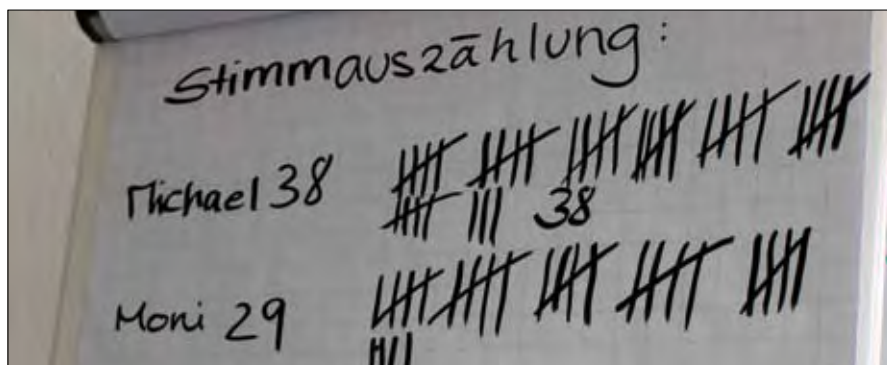 Stimmauszählung:
Michael 38
38
Moni 29